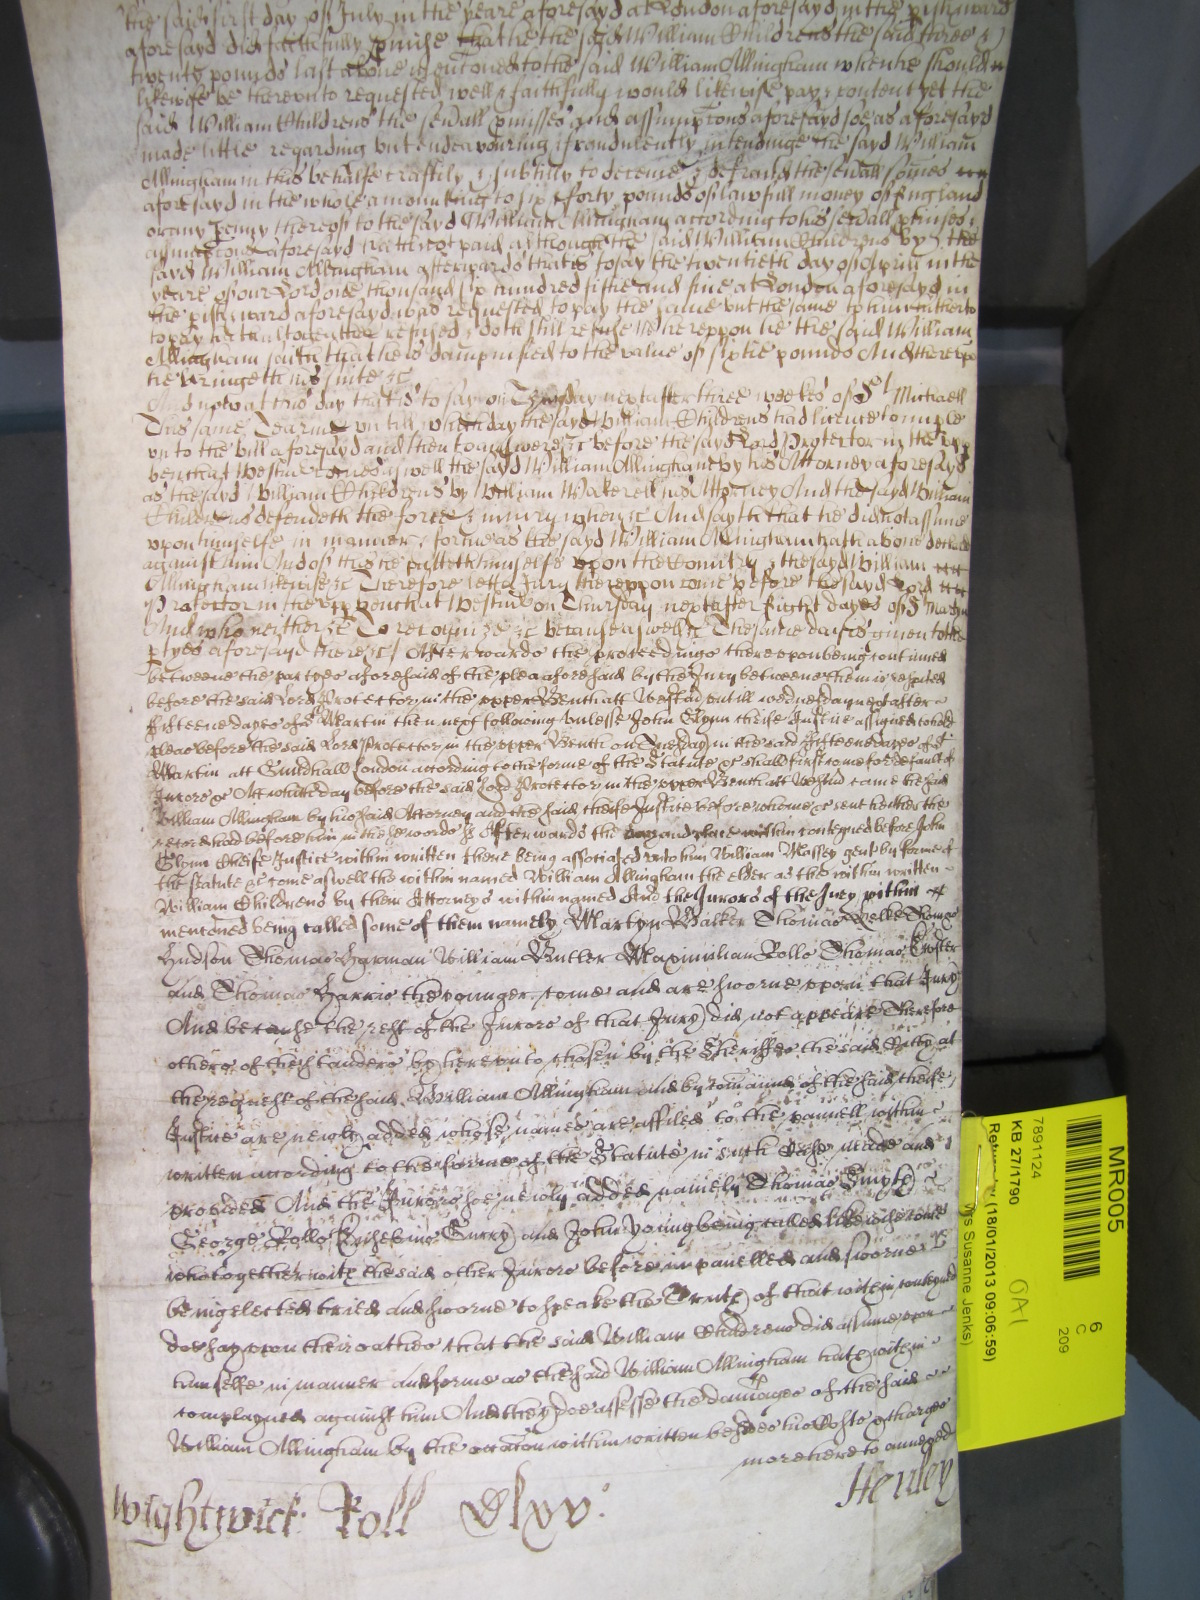 the said first day of July in the yeare aforesayd at London aforesayd in the pish & ward
aforesayd did faithfully pmise that he the said William Childrens the said three &
twenty pounds last above mentoned to the said William Allingham when he should
likewise be therevnto requested well & faithfully would likewise pay & content yet the
said William Childrens the sevall pmisses and assumptons aforesayd soe as aforesayd
made little regarding but endeavouring & fraudulently intendinge the sayd William
Allingham in this behalfe craftily & subtilly to deceive & defraud the sevall somes
aforesayd in the whole amounting to six & forty pounds of lawfull money of England
or any penny thereof to the sayd William Allingham according to his sevall pmises &
assumptons aforesayd hath not paid although the said William Childrens by the
sayd William Allingham afterwards that is to say the twentieth day of Aprill in the
yeare of our Lord one thousand six hundred fiftie and five at London aforesayd in
the pish & ward aforesayd was requested to pay the same but the same to him hitherto
to pay hath altogether refused & doth still refuse Wherevppon he the said William
Allingham saith that he is dampnified to the value of sixtie pounds And therevpo
he bringeth his suite &c
And now at this day that is to say on day next after three weekes of St Michaell
this same Tearme vntill which day the sayd William Childrens had licence to imple
vnto the bill aforesayd and then to answere &c before the sayd Lord Protector in the vpp
bench at Westm comes aswell the sayd William Allingham by his Attorney aforesayd
as the sayd William Childrens by William Wakerell his Attorney And the sayd William
Childrens defendeth the force & iniury when &c And sayth that he did not assume
vpon himselfe in manner & forme as the sayd William Allingham hath above declared
against him And of this he putteth himselfe vpon the Country & the sayd William
Allingham likewise &c Therefore lett a Jury therevppon come before the sayd Lord
Protector in the vpp bench at Westm on Thursday next after Eight dayes of St Martyn
And who neither &c To recognize &c because aswell &c The same day is given to the
ptyes aforesayd there &c Afterwards the proceedings therevpon being continued
betweene the partyes aforesaid of the plea aforesaid by the Jury betweene them is respited
before the said Lord Protector in the vpper Bench att Westm vntill wednesday next after
fifteene dayes of St Martin then next following vnlesse John Glynn cheife Justice assigned to hold
pleas before the said Lord Protector in the vpper Bench on Tuesday in the said fifteene dayes of St
Martin att Guildhall London according to the forme of the Statute &c shall first come for default of
Jurors &c Att which day before the said Lord Protector in the vpper Bench att Westm came the said
William Allingham by his said Attorney and the said cheife Justice before whome &c sent hither the
record had before him in these words ss Afterwards the day and place within conteyned before John
Glynn Cheife Justice within written there being associated vnto him William Massey gent by forme of
the statute &c come aswell the within named William Allingham the elder as the within written
William Childrens by their Attorneys within named And the Jurors of the Jury within
mentoned being called some of them namely Martyn Walker Thomas Thomas
Hudson Thomas Harman William Butler Maximilian Rollo Thomas
and Thomas Harris the younger come and are sworne vpon that Jury
And because the rest of the Jurors of that Jury did not appeare Therefore
others of the standers by herevnto chosen by the Sheriffes the said Citty at
the request of the said William Allingham and by command of the said cheife
Justice are newly added whose names are affiled to the pannell within
written according to the forme of the Statute in such Case made and
provided And the Jurors soe newly added namely Thomas Smyth
George Rollo and John Young being called likewise come
who together with the said other Jurors before impanelled and sworne
being elected tried and sworne to speake the Truth of that within conteyned
doe say vpon their oathes that the said William Childrens did assume vpon
himselfe in manner and forme as the said William Allingham hath within
complayned against him And they doe assesse the damages of the said
William Allingham by the occaton within written besides his Costs & charges
more herd to annexed
Wightwick Roll Dlxv
Henley
MR005
6
C
209
7891124
KB 27/1790
(18/01/2013 09:06:59)
Susanne Jenks)